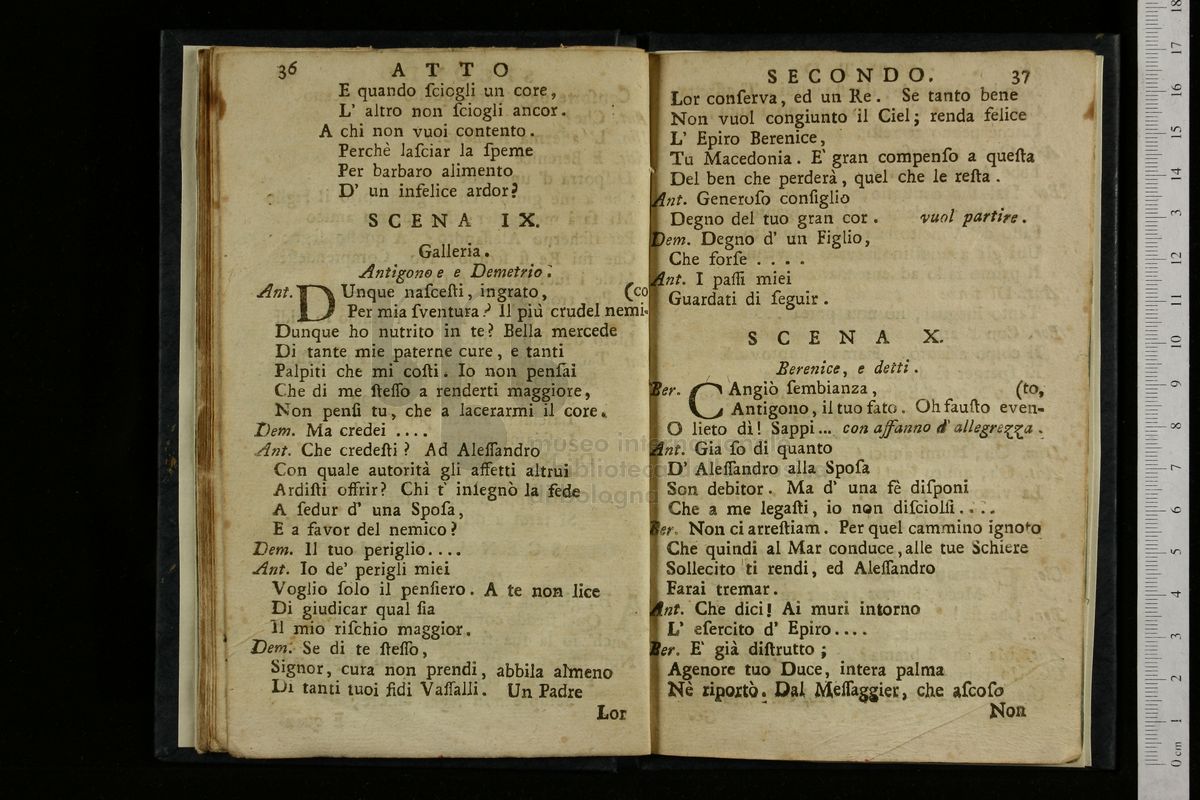 36 ATTO
E quando ſciogli un core,
L' altro non ſciogli ancor.
A chi non vuoi contento.
Perchè laſciar la ſpeme
Per barbaro alimento
D' un infelice ardor?
SCENA IX.
Galleria.
Antigono e e Demetrio.
Ant. DUnque naſceſti, ingrato, (co
Per mia ſventura? Il più crudel nemi-
Dunque ho nutrito in te? Bella mercede
Di tante mie paterne cure, e tanti
Palpiti che mi coſti. Io non penſai
Che di me ſteſſo a renderti maggiore,
Non penſi tu, che a lacerarmi il core.
Dem. Ma credei ....
Ant. Che credeſti? Ad Aleſſandro
Con quale autorità gli affetti altrui
Ardiſti offrir? Chi t' inſegnò la fede
A ſedur d' una Spoſa,
E a favor del nemico?
Dem. Il tuo periglio....
Ant. Io de' perigli miei
Voglio ſolo il penſiero. A te non lice
Di giudicar qual ſia
Il mio riſchio maggior.
Dem. Se di te ſteſſo,
Signor, cura non prendi, abbila almeno
Di tanti tuoi fidi Vaſſalli. Un Padre
Lor
SECONDO. 37
Lor conſerva, ed un Re. Se tanto bene
Non vuol congiunto il Ciel; renda felice
L' Epiro Berenice,
Tu Macedonia. E' gran compenſo a queſta
Del ben che perderà, quel che le reſta.
Ant. Generoſo conſiglio
Degno del tuo gran cor. vuol partire.
Dem. Degno d' un Figlio,
Che forſe ....
Ant. I paſſi miei
Guardati di ſeguir.
SCENA X.
Berenice, e detti.
Ber. CAngiò ſembianza, (to,
Antigono, il tuo fato. Oh fauſto even-
O lieto dì! Sappi... con affanno d' allegrezza.
Ant. Gia ſo di quanto
D' Aleſſandro alla Spoſa
Son debitor. Ma d' una fè diſponi
Che a me legaſti, io non diſciolſi....
Ber. Non ci arreſtiam. Per quel cammino ignoto
Che quindi al Mar conduce, alle tue Schiere
Sollecito ti rendi, ed Aleſſandro
Farai tremar.
Ant. Che dici! Ai muri intorno
L' eſercito d' Epiro....
Ber. E' già diſtrutto;
Agenore tuo Duce, intera palma
Nè riportò. Dal Meſſaggier, che aſcoſo
Non
museo internazionale
biblioteca della musica
di bologna
0 cm 1 2 3 4 5 6 7 8 9 10 11 12 13 14 15 16 17 18